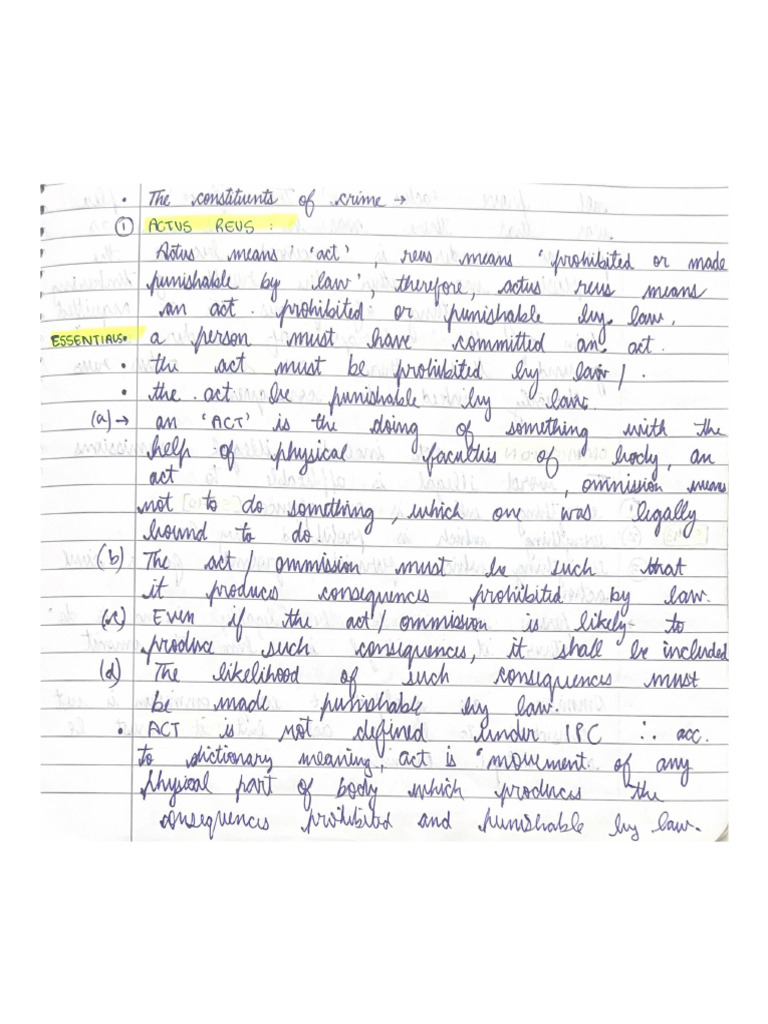 • The constituents of crime →
① ACTUS REUS :
Actus means 'act', reus means 'prohibited or made
punishable by law', therefore, actus reus means
an act prohibited or punishable by law.
ESSENTIALS • a person must have committed an act.
• the act must be prohibited by law/.
• the act be punishable by law.
(a) → an 'ACT' is the doing of something with the
help of physical faculties of body, an
act , ommission means
not to do something, which one was legally
bound to do.
(b) The act/ommission must be such that
it produces consequences prohibited by law.
(c) Even if the act/ommission is likely to
produce such consequences, it shall be included
(d) The likelihood of such consequences must
be made punishable by law.
• ACT is not defined under IPC ∴ acc.
to dictionary meaning, act is 'movement of any
physical part of body which produces the
consequences prohibited and punishable by law.